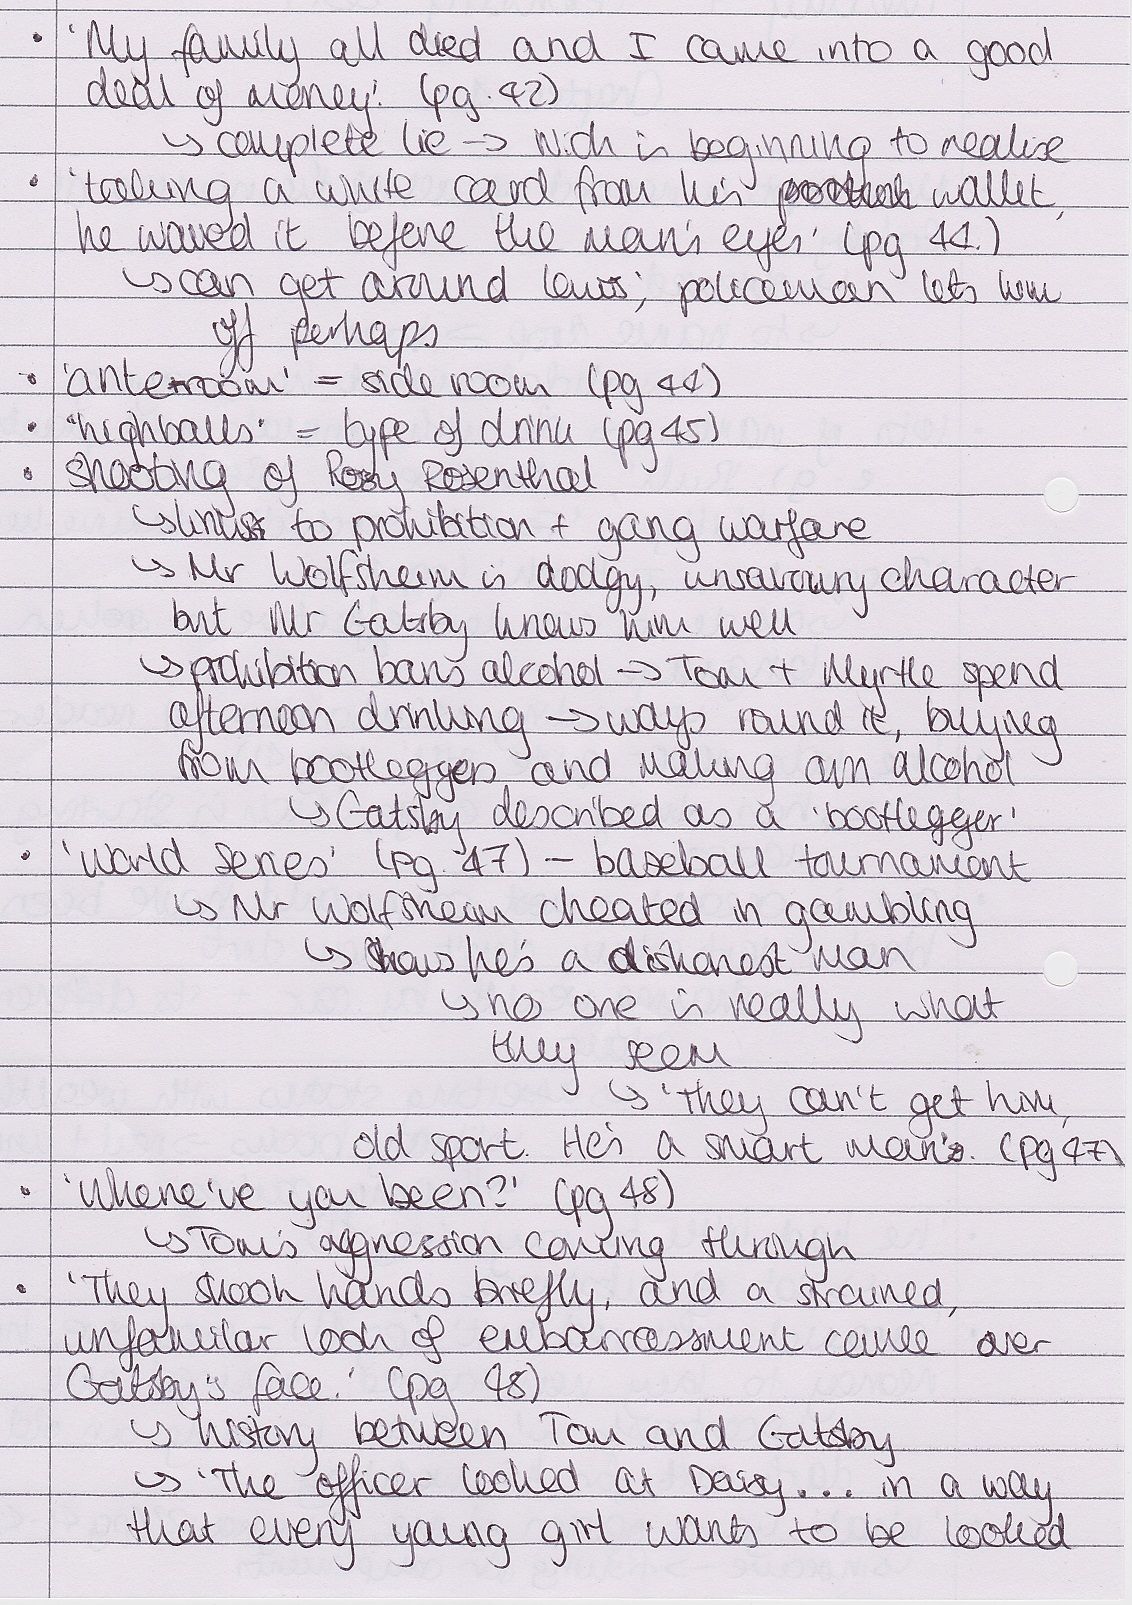 • 'My family all died and I came into a good
deal of money.' (pg. 42)
↳ complete lie → Nick is beginning to realise
• 'taking a white card from his wallet,
he waved it before the man's eyes' (pg 44.)
↳ can get around laws; policeman lets him
off perhaps
• 'anteroom' = side room (pg 44)
• 'highballs' = type of drink (pg 45)
• shooting of Rosy Rosenthal
↳ links to prohibition + gang warfare
↳ Mr Wolfsheim is dodgy, unsavoury character
but Mr Gatsby knows him well
↳ prohibition bans alcohol → Tom + Myrtle spend
afternoon drinking → ways round it, buying
from bootleggers and making own alcohol
↳ Gatsby described as a 'bootlegger'
• 'World Series' (pg. 47) – baseball tournament
↳ Mr Wolfsheim cheated in gambling
↳ shows he's a dishonest man
↳ no one is really what
they seem
↳ 'They can't get him,
old sport. He's a smart man'. (pg 47)
• 'Where've you been?' (pg 48)
↳ Tom's aggression coming through
• 'They shook hands briefly, and a strained,
unfamiliar look of embarrassment came over
Gatsby's face.' (pg 48)
↳ history between Tom and Gatsby
↳ 'The officer looked at Daisy... in a way
that every young girl wants to be looked